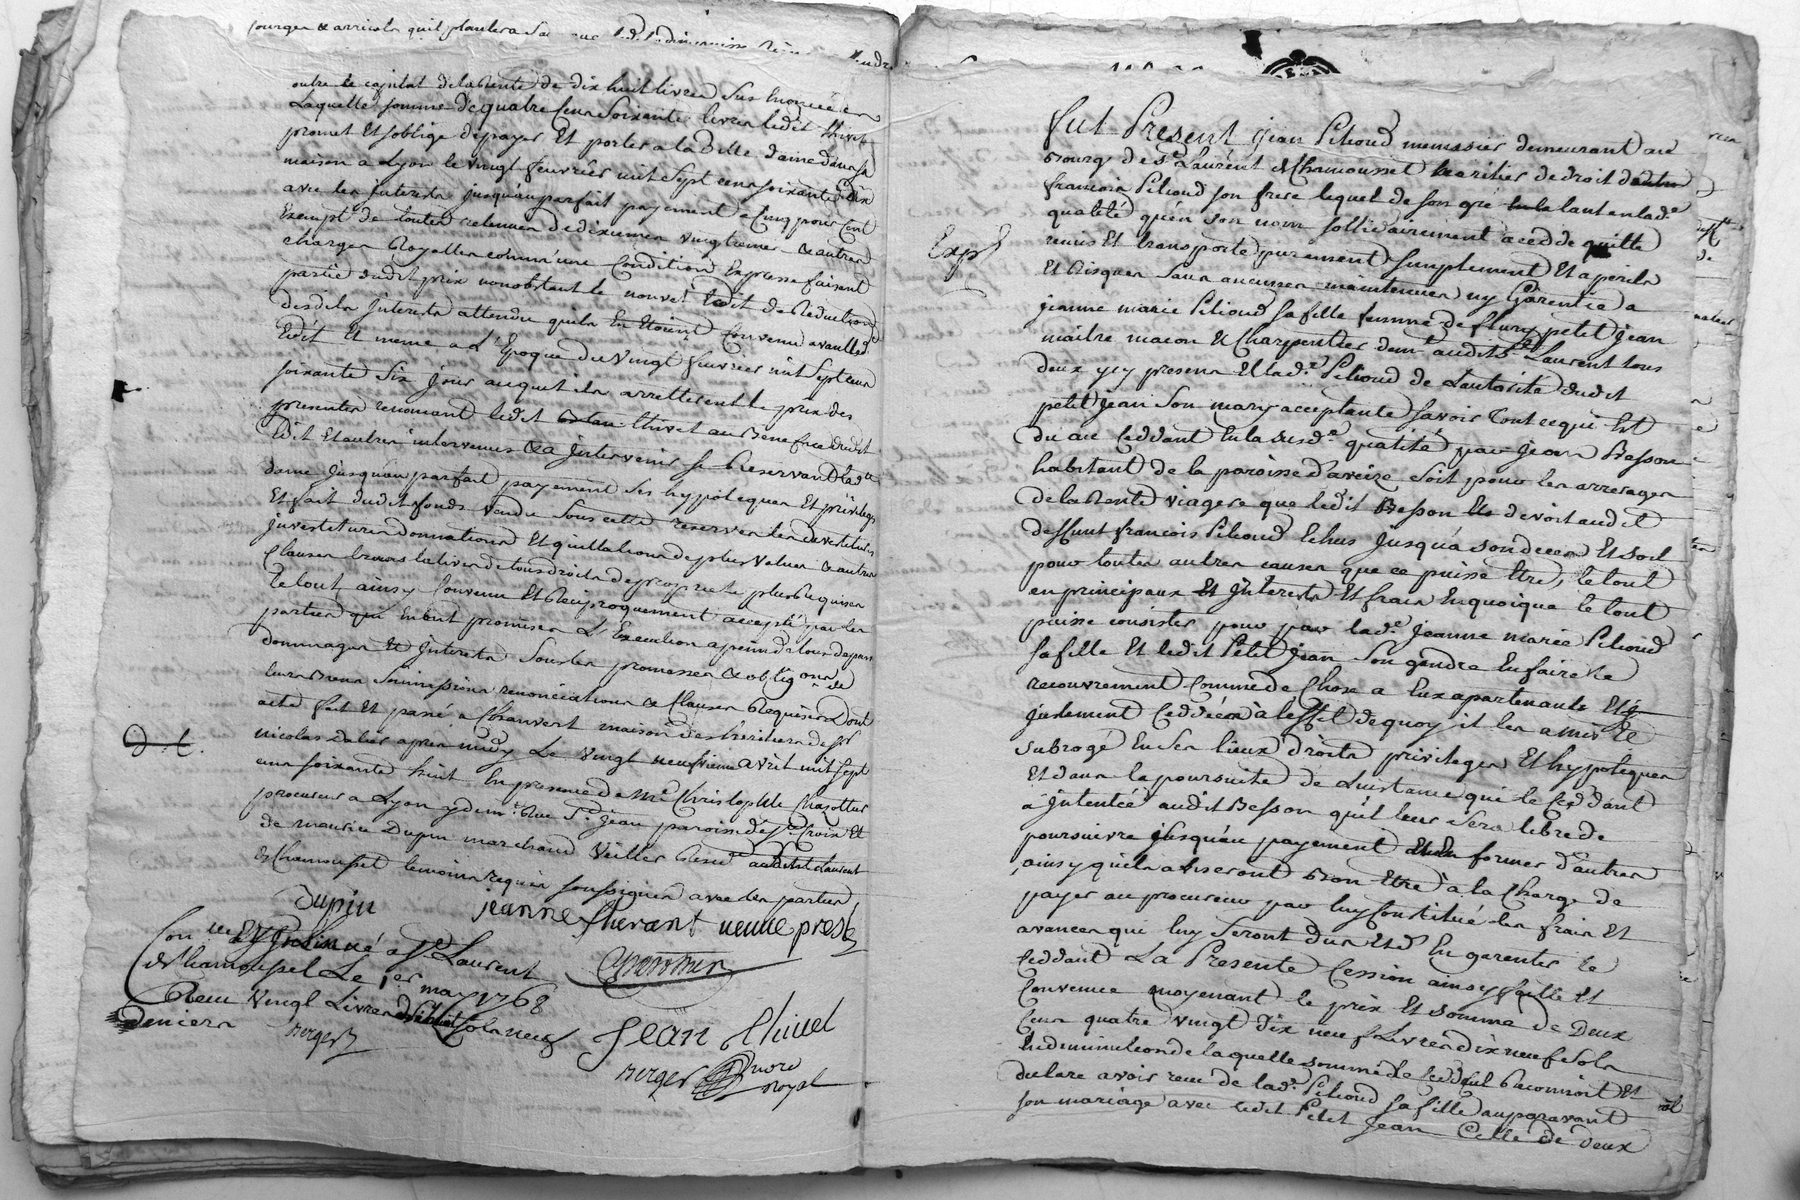 outre le capital de la Rente de dix huit livres sus Enoncée
Laquelle somme de quatre Cens soixante livres ledit thivet
promet Et soblige de payer Et porter a la ditte dame dans sa
maison a Lyon le vingt feuvrier mil sept cens soixante dix
avec les Interests jusquau parfait payement a Cinq pour Cent
Exempt de toutes retenues de dixiemes vingtiemes & autres
charges Royalles comme une Condition Expresse faisant
partie dudit prix nonobstant le nouvel Edit de Reduction
desdits Interests attendu quils En Etoient Convenu avant led
Edit Et meme a L'Epoque du Vingt feuvrier mil sept cens
soixante six jour auquel ils arretterent le prix des
presentes renoncant ledit thivet au Benefice dudit
Edit Et autres intervenus & a Intervenir se Reservant lad
dame jusquau parfait payement ses hypoteques Et privileges
Et fait dudit fonds vendu sous cette reserve les devestitures
investitures donnations Et quittations de plus values & autres
Clauses translatives de tous droits de propriete plus Requises
le tout ainsy Convenu Et Reciproquement accepté par les
parties qui En ont promises L'Execution a peine de tous depens
dommages Et Interests sous les promesses & oblig.ons de
leurs Biens soumissions renonciations & Clauses Requises Dont
acte fait Et passé a Chanvert maison des heritiers de Sr
nicolas Dalier apres midy Le vingt neufvieme avril mil sept
cens soixante huit En presence de Me Christophle Chasottier
procureur a Lyon y dem.t Rue St jean paroisse de Ste Croix Et
de maurice Dupin marchand audit St Laurent
de Chamousset temoins requis soussignes avec les parties
Dupin jeanne veuve
D. t.
Con.lle Et Insinué a St Laurent
de Chamousset Le 1er may 1768
Receu vingt Livres sols neuf
deniers Berger
Jean thivet
Berger no.re
Royal
Fut Present Jean Pitioud menusier demeurant au
Bourg de St Laurent de Chamousset heritier de droit de
francois Pitioud son frere lequel de son gré tant en lad.e
qualité qu'en son nom sollidairement a cedde quitté
remis Et transporte purement simplement Et a perils
Exp
Et Risques sans aucunes maintenues ny Garentie a
jeanne marie Pitioud sa fille femme de fleury petit jean
maitre macon & Charpentier dem.t audit St Laurent tous
deux y cy presens Et lad.e Pitioud de Lautorité dudit
petit Jean son mary acceptante savoir tout ce qui Est
du au Ceddant En la susd.e qualité par Jean Besson
habitant de la paroisse d'aveize soit pour les arrerages
de la Rente viagere que ledit Besson devoit audit
deffunt francois Pitioud Echus jusqu'a son deces Et soit
pour toutes autres causes que ce puisse Etre, le tout
en principaux Et Interests Et frais En quoique le tout
puisse consister pour par lad.e Jeanne marie Pitioud
sa fille Et ledit Petit Jean son gendre En faire le
recouvrement comme de Chose a Eux apartenante Et
justement Ceddée a l'effet de quoy il les a mis Et
subrogé En ses lieux droits privileges Et hypoteques
Et dans la poursuite de Linstance que le Ceddant
a Intentée audit Besson qu'il leur sera libre de
poursuivre jusquau payement former d'autres
ainsy quils aviseront Bon Etre a la Charge de
payer au procureur par luy Constitué les frais Et
avances que luy seront dus Et d'En garentir le
Ceddant La Presente Cession ainsy faitte Et
Convenue moyenant le prix Et somme de Deux
Cens quatre vingt dix neuf Livres dix neuf sols
En deminution de laquelle somme le Ceddant Reconnoit Et
declare avoir receu de lad.e Pitioud sa fille auparavant
son mariage avec ledit Petit Jean Celle de Deux